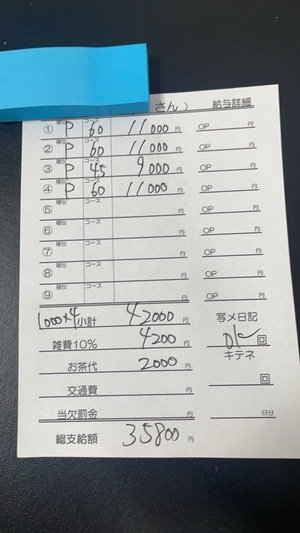 さん） 給与詳細
① 種別 P コース 60 11000円 OP 円
② 種別 P コース 60 11000円 OP 円
③ 種別 P コース 45 9000円 OP 円
④ 種別 P コース 60 11000円 OP 円
⑤ 種別 コース 円 OP 円
⑥ 種別 コース 円 OP 円
⑦ 種別 コース 円 OP 円
⑧ 種別 コース 円 OP 円
⑨ 種別 コース 円 OP 円
1000×4 小計 42000円 写メ日記
雑費10% 4200円 回
お茶代 2000円 キテネ
交通費 円 回
当欠罰金 円 日分
総支給額 35800円